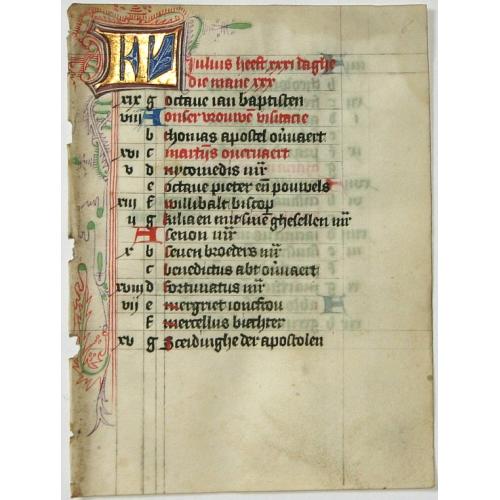 KL Iulius heeft xxxi daghe
die mane xxx
xix g octave ian baptisten
viii A onser vrouwen visitacie
b thomas apostel ov̄vaert
xvi c martijns overvaert
v d nycomedis mr̄
e octave pieter eñ pouwels
xiii f willibalt biscop
ii g kiliaen mit sinē ghesellen mr̄
A zenon mr̄
x b seven broeders mr̄
c benedictus abt ov̄vaert
xviii d fortunatus mr̄
vii e mergriet ioncfrou
f mercellus biechter
xv g Sceidinghe der apostolen